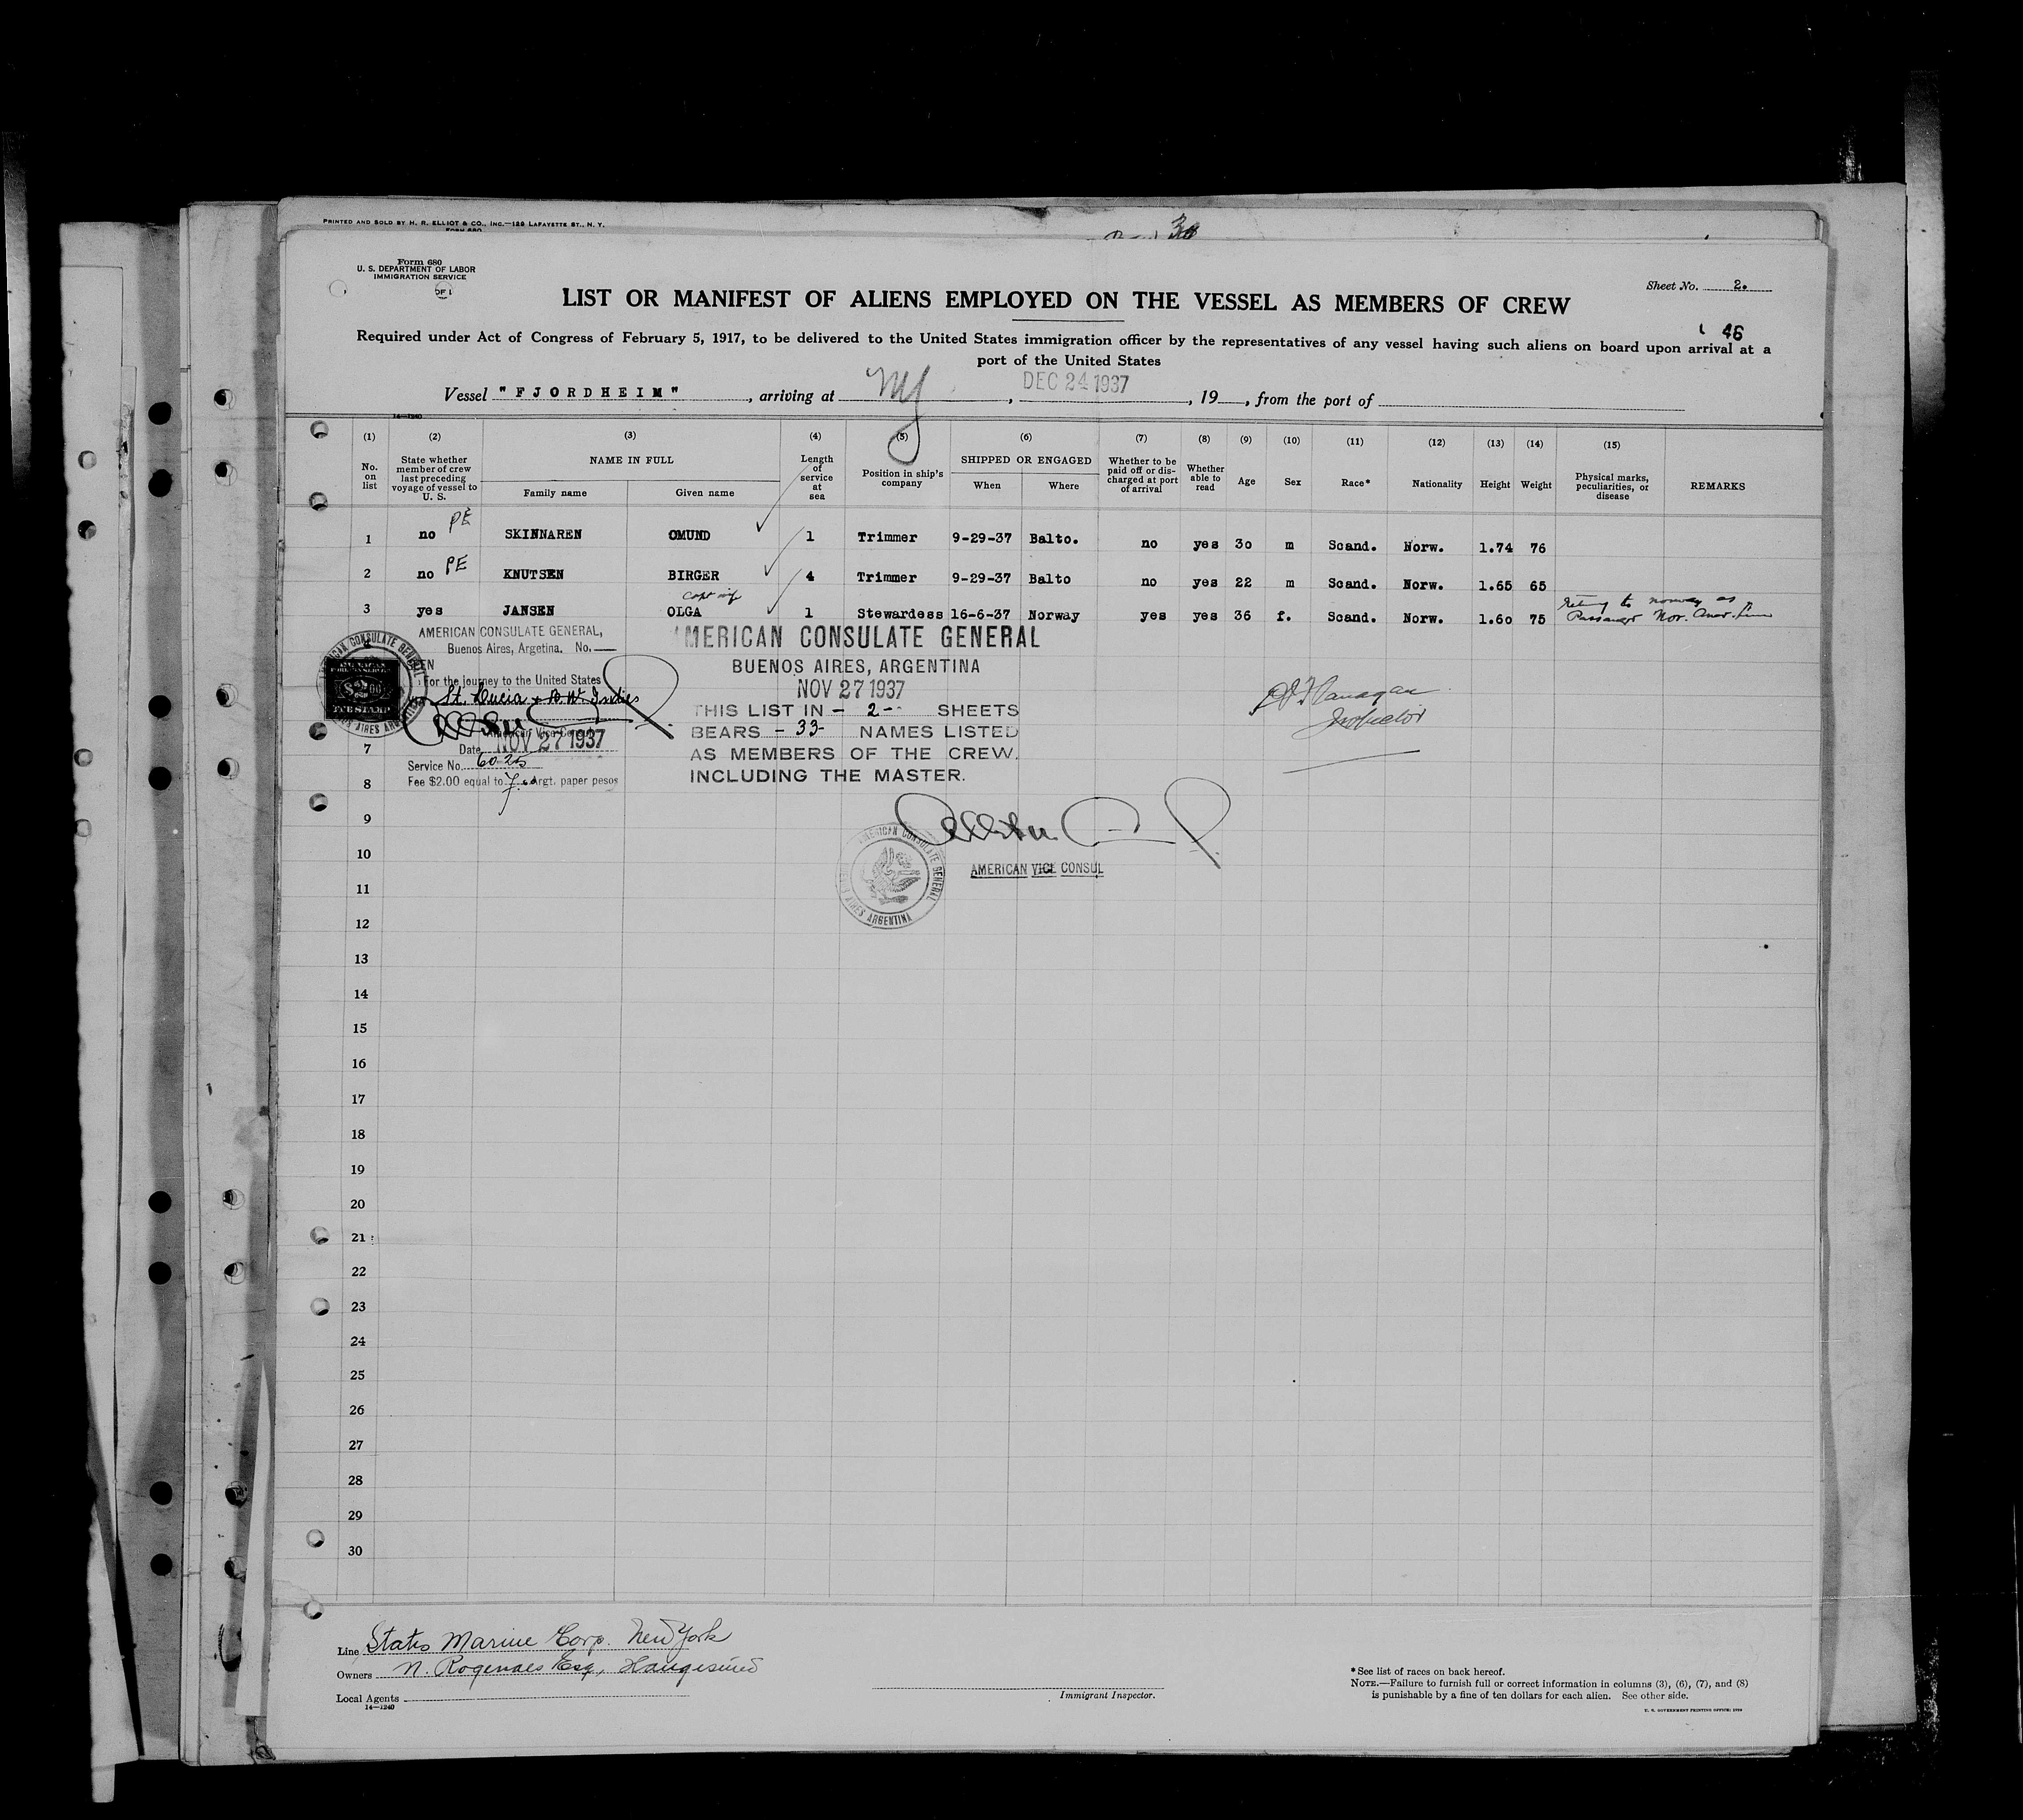 PRINTED AND SOLD BY H. R. ELLIOT & CO., INC.—129 LAFAYETTE ST., N. Y.
FORM 680
30
Form 680
U. S. DEPARTMENT OF LABOR
IMMIGRATION SERVICE
Sheet No. 2.
LIST OR MANIFEST OF ALIENS EMPLOYED ON THE VESSEL AS MEMBERS OF CREW
46
Required under Act of Congress of February 5, 1917, to be delivered to the United States immigration officer by the representatives of any vessel having such aliens on board upon arrival at a
port of the United States
Vessel "FJORDHEIM", arriving at NY, DEC 24 1937, 19, from the port of
14—1240
(1) (2) (3) (4) (5) (6) (7) (8) (9) (10) (11) (12) (13) (14) (15)
No. on list State whether member of crew last preceding voyage of vessel to U. S. NAME IN FULL Family name Given name Length of service at sea Position in ship's company SHIPPED OR ENGAGED When Where Whether to be paid off or discharged at port of arrival Whether able to read Age Sex Race* Nationality Height Weight Physical marks, peculiarities, or disease REMARKS
1 no PE SKINNAREN OMUND 1 Trimmer 9-29-37 Balto. no yes 30 m Scand. Norw. 1.74 76
2 no PE KNUTSEN BIRGER 4 Trimmer 9-29-37 Balto no yes 22 m Scand. Norw. 1.65 65
Capt wife
3 yes JANSEN OLGA 1 Stewardess 16-6-37 Norway yes yes 36 f. Scand. Norw. 1.60 75 retng to norway as
Passenger Nor. Amer. Line
AMERICAN CONSULATE GENERAL,
Buenos Aires, Argetina. No.
For the journey to the United States
St. Lucia & B.W. Indies
American Vice Consul
Date NOV 27 1937
Service No. 6025
Fee $2.00 equal to Argt. paper pesos
AMERICAN CONSULATE GENERAL
BUENOS AIRES, ARGENTINA
NOV 27 1937
THIS LIST IN - 2 - SHEETS
BEARS - 33 - NAMES LISTED
AS MEMBERS OF THE CREW.
INCLUDING THE MASTER.
Flanagan
Inspector
AMERICAN VICE CONSUL
AMERICAN CONSULATE GENERAL
AIRES ARGENTINA
7
8
9
10
11
12
13
14
15
16
17
18
19
20
21
22
23
24
25
26
27
28
29
30
Line States Marine Corp. New York
Owners N. Rogenaes Esq., Haugesund
Local Agents
14—1240
Immigrant Inspector.
* See list of races on back hereof.
NOTE.—Failure to furnish full or correct information in columns (3), (6), (7), and (8)
is punishable by a fine of ten dollars for each alien. See other side.